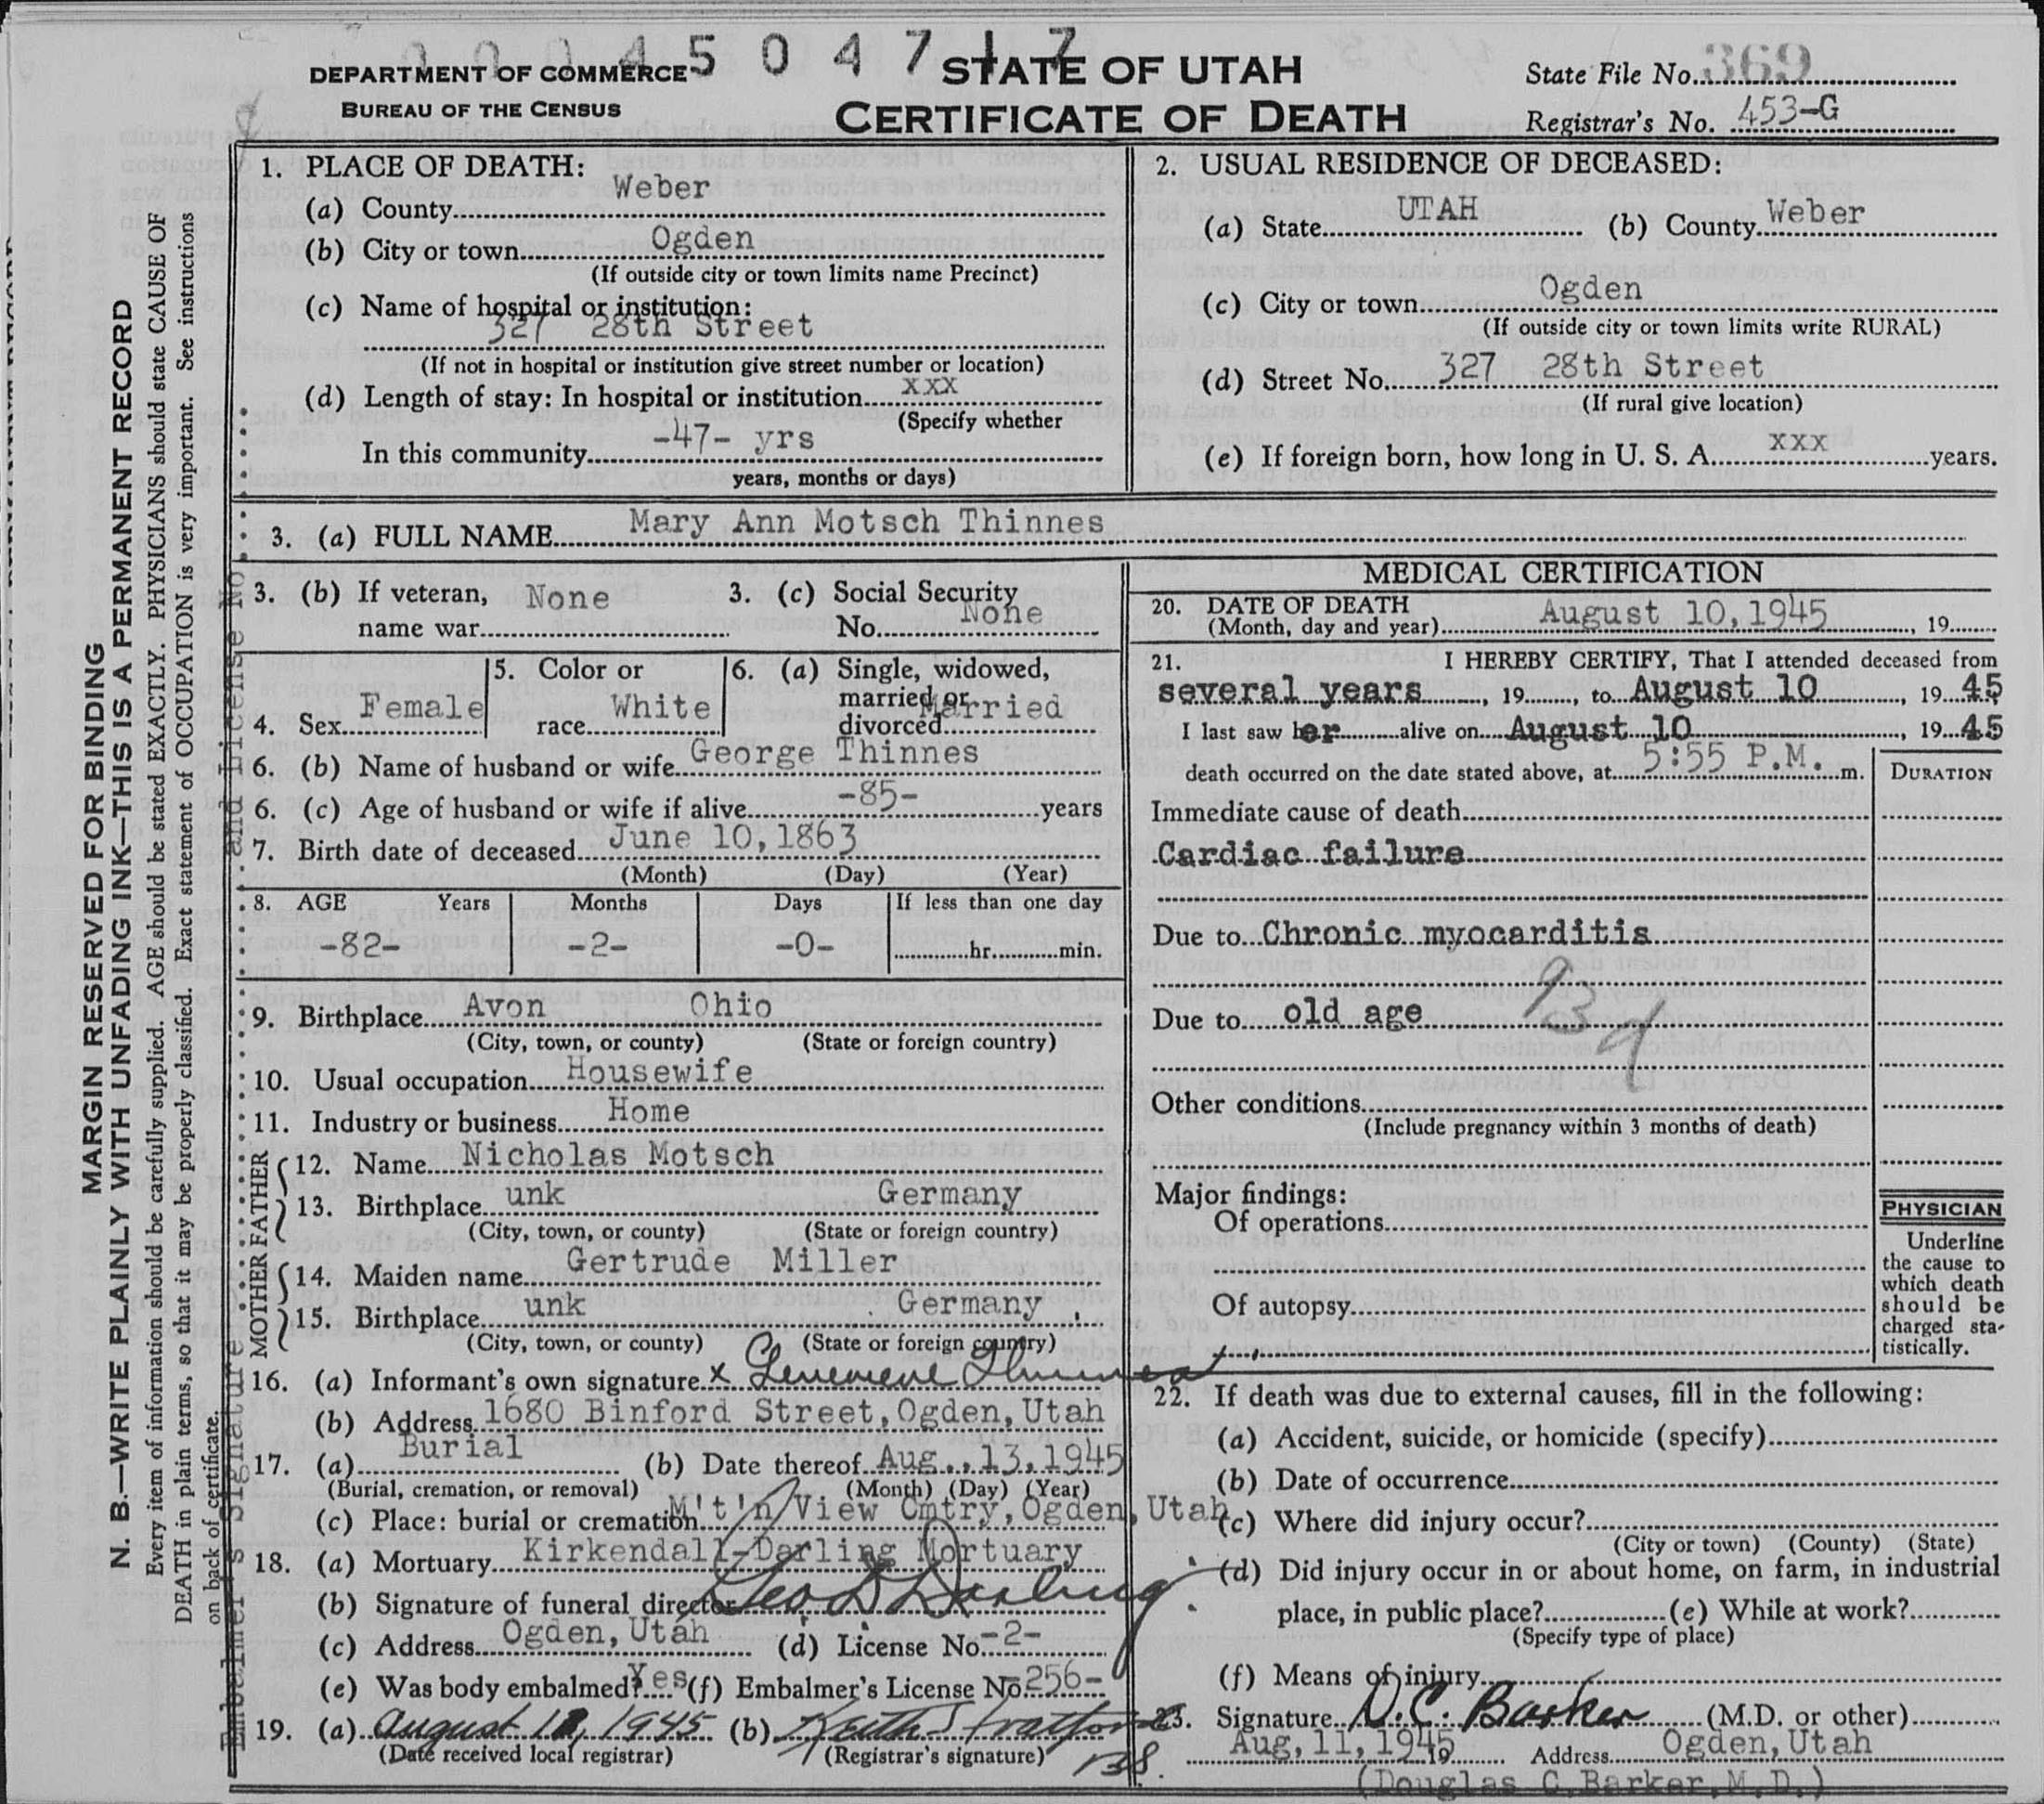 0 0 0 4 5 0 4 7 1 7
DEPARTMENT OF COMMERCE
BUREAU OF THE CENSUS
STATE OF UTAH
CERTIFICATE OF DEATH
State File No. 369
Registrar's No. 453-G
MARGIN RESERVED FOR BINDING
N. B.—WRITE PLAINLY WITH UNFADING INK—THIS IS A PERMANENT RECORD
Every item of information should be carefully supplied. AGE should be stated EXACTLY. PHYSICIANS should state CAUSE OF
DEATH in plain terms, so that it may be properly classified. Exact statement of OCCUPATION is very important. See instructions
on back of certificate.
Embalmer's Signature and License No.
1. PLACE OF DEATH:
(a) County Weber
(b) City or town Ogden
(If outside city or town limits name Precinct)
(c) Name of hospital or institution:
327 28th Street
(If not in hospital or institution give street number or location)
(d) Length of stay: In hospital or institution xxx
(Specify whether
In this community -47- yrs
years, months or days)
2. USUAL RESIDENCE OF DECEASED:
(a) State UTAH (b) County Weber
(c) City or town Ogden
(If outside city or town limits write RURAL)
(d) Street No. 327 28th Street
(If rural give location)
(e) If foreign born, how long in U. S. A. xxx years.
3. (a) FULL NAME Mary Ann Motsch Thinnes
3. (b) If veteran, name war None
3. (c) Social Security No. None
4. Sex Female
5. Color or race White
6. (a) Single, widowed, married or divorced Married
6. (b) Name of husband or wife George Thinnes
6. (c) Age of husband or wife if alive -85- years
7. Birth date of deceased June 10, 1863
(Month) (Day) (Year)
8. AGE Years Months Days If less than one day
-82- -2- -0- hr. min.
9. Birthplace Avon Ohio
(City, town, or county) (State or foreign country)
10. Usual occupation Housewife
11. Industry or business Home
FATHER
12. Name Nicholas Motsch
13. Birthplace unk Germany
(City, town, or county) (State or foreign country)
MOTHER
14. Maiden name Gertrude Miller
15. Birthplace unk Germany
(City, town, or county) (State or foreign country)
16. (a) Informant's own signature x Genevieve Thinnes
(b) Address 1680 Binford Street, Ogden, Utah
17. (a) Burial (b) Date thereof Aug., 13, 1945
(Burial, cremation, or removal) (Month) (Day) (Year)
(c) Place: burial or cremation M't'n View Cmtry, Ogden, Utah
18. (a) Mortuary Kirkendall-Darling Mortuary
(b) Signature of funeral director Geo D Darling
(c) Address Ogden, Utah (d) License No. -2-
(e) Was body embalmed? Yes (f) Embalmer's License No. 256-
19. (a) August 12, 1945 (b) Keith Stratford
(Date received local registrar) (Registrar's signature)
138.
MEDICAL CERTIFICATION
20. DATE OF DEATH
(Month, day and year) August 10, 1945, 19
21. I HEREBY CERTIFY, That I attended deceased from
several years, 19, to August 10, 19 45
I last saw her alive on August 10, 19 45
death occurred on the date stated above, at 5:55 P.M. m.
DURATION
Immediate cause of death
Cardiac failure
Due to Chronic myocarditis
93 d
Due to old age
Other conditions
(Include pregnancy within 3 months of death)
Major findings:
Of operations
Of autopsy
PHYSICIAN
Underline
the cause to
which death
should be
charged sta-
tistically.
22. If death was due to external causes, fill in the following:
(a) Accident, suicide, or homicide (specify)
(b) Date of occurrence
(c) Where did injury occur?
(City or town) (County) (State)
(d) Did injury occur in or about home, on farm, in industrial
place, in public place? (e) While at work?
(Specify type of place)
(f) Means of injury
23. Signature D. C. Barker (M.D. or other)
Aug, 11, 1945 19 Address Ogden, Utah
(Douglas C. Barker, M. D.)